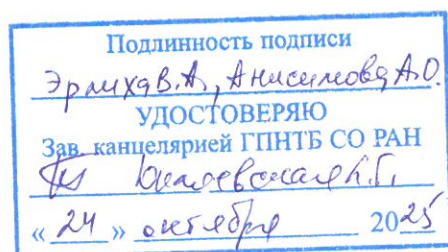 Подлинность подписи
Эрлиха В.А., Анисимова А.О.
УДОСТОВЕРЯЮ
Зав. канцелярией ГПНТБ СО РАН
« 24 » октября 2025